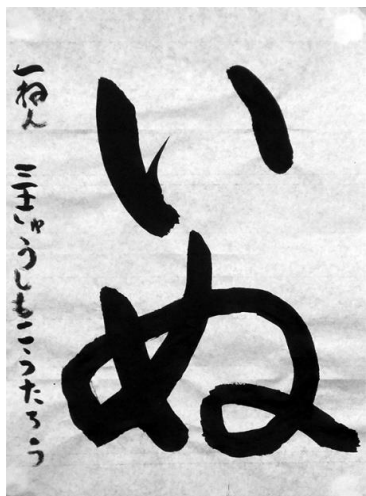 いぬ
一ねん 三きゅうしもこうたろう